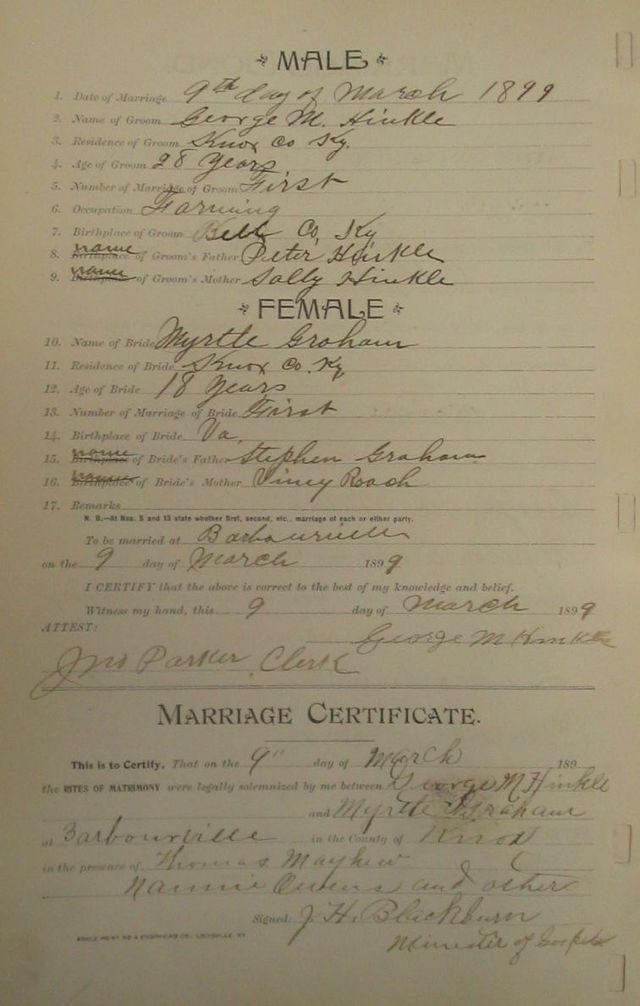 MALE
1. Date of Marriage 9th day of March 1899
2. Name of Groom George M. Hinkle
3. Residence of Groom Knox Co Ky.
4. Age of Groom 28 Years
5. Number of Marriage of Groom First
6. Occupation Farming
7. Birthplace of Groom Bell Co, Ky
8. name Birthplace of Groom's Father Peter Hinkle
9. name Birthplace of Groom's Mother Sally Hinkle
FEMALE
10. Name of Bride Myrtle Graham
11. Residence of Bride Knox Co. Ky
12. Age of Bride 18 Years
13. Number of Marriage of Bride First
14. Birthplace of Bride Va.
15. name Birthplace of Bride's Father Stephen Graham
16. name Birthplace of Bride's Mother Viney Roach
17. Remarks
N. B.—At Nos. 5 and 13 state whether first, second, etc., marriage of each or either party.
To be married at Barbourville
on the 9 day of March 1899
I CERTIFY that the above is correct to the best of my knowledge and belief.
Witness my hand, this 9 day of March 1899
ATTEST:
George M Hinkle
Jno Parker Clerk
MARRIAGE CERTIFICATE.
This is to Certify, That on the 9" day of March 189
the RITES OF MATRIMONY were legally solemnized by me between George M Hinkle
and Myrtle Graham
at Barbourville in the County of Knox
in the presence of Thomas Mayhew
Nannie Owens and other
Signed: J. H. Blackburn
Minister of Gospel